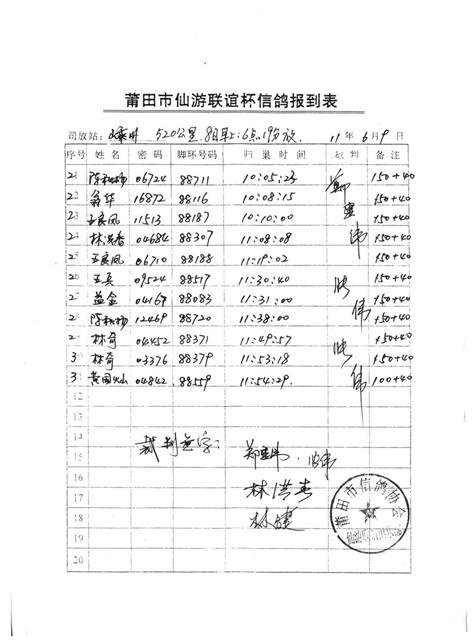 莆田市仙游联谊杯信鸽报到表
司放站: 520公里 8日早上:6点19分放 11年6月9日
序号 姓名 密码 脚环号码 归巢时间 裁判 备注
21 06724 88711 10:05:23 郑 150+40
22 翁华 16872 88116 10:08:15 150+40
23 王晨风 11513 88187 10:10:00 150+40
24 林洪春 04684 88307 11:08:08 伟 150+40
25 王晨风 06710 88188 11:19:02 150+40
26 王真 09524 88517 11:30:40 150+40
27 益金 04167 88083 11:31:00 伟 150+40
28 12469 88720 11:38:00 150+40
2 林奇 04452 88371 11:49:57 150+40
3 林奇 03376 88379 11:53:18 伟 150+40
3 黄国灿 04842 88559 11:54:29. 100+40
12
13
14
15 裁判签字: 郑 伟.
16 林洪春
17 林健
18
19
20
莆田市信鸽协会